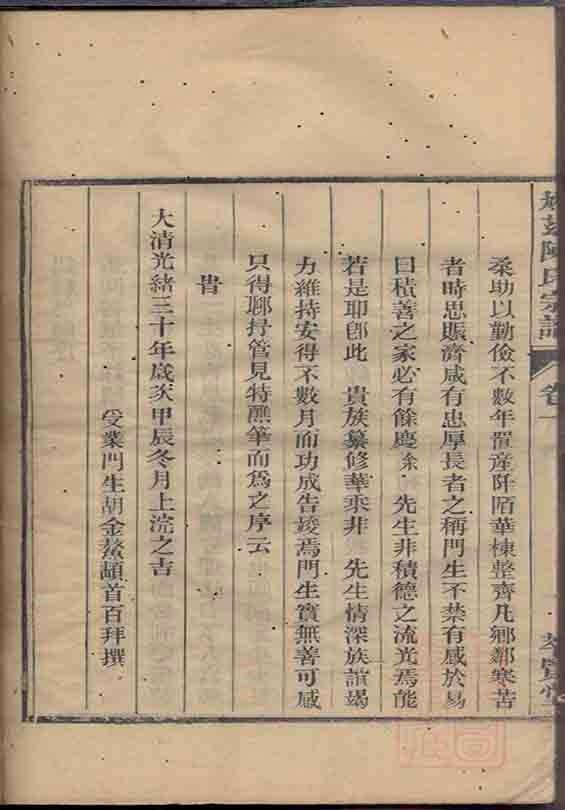 陳氏宗譜 卷一
柔助以勤儉不數年置産阡陌華棟整齊凡鄉鄰寒苦
者時思賑濟咸有忠厚長者之稱門生不禁有感於易
曰積善之家必有餘慶余 先生非積德之流光焉能
若是耶卽此 貴族纂修華乘非 先生情深族誼竭
力維持安得不數月而功成告竣焉門生實無善可感
只得聊抒管見特蘸筆而爲之序云
旹
大清光緒三十年歲次甲辰冬月上浣之吉
受業門生胡金鰲頓首百拜撰